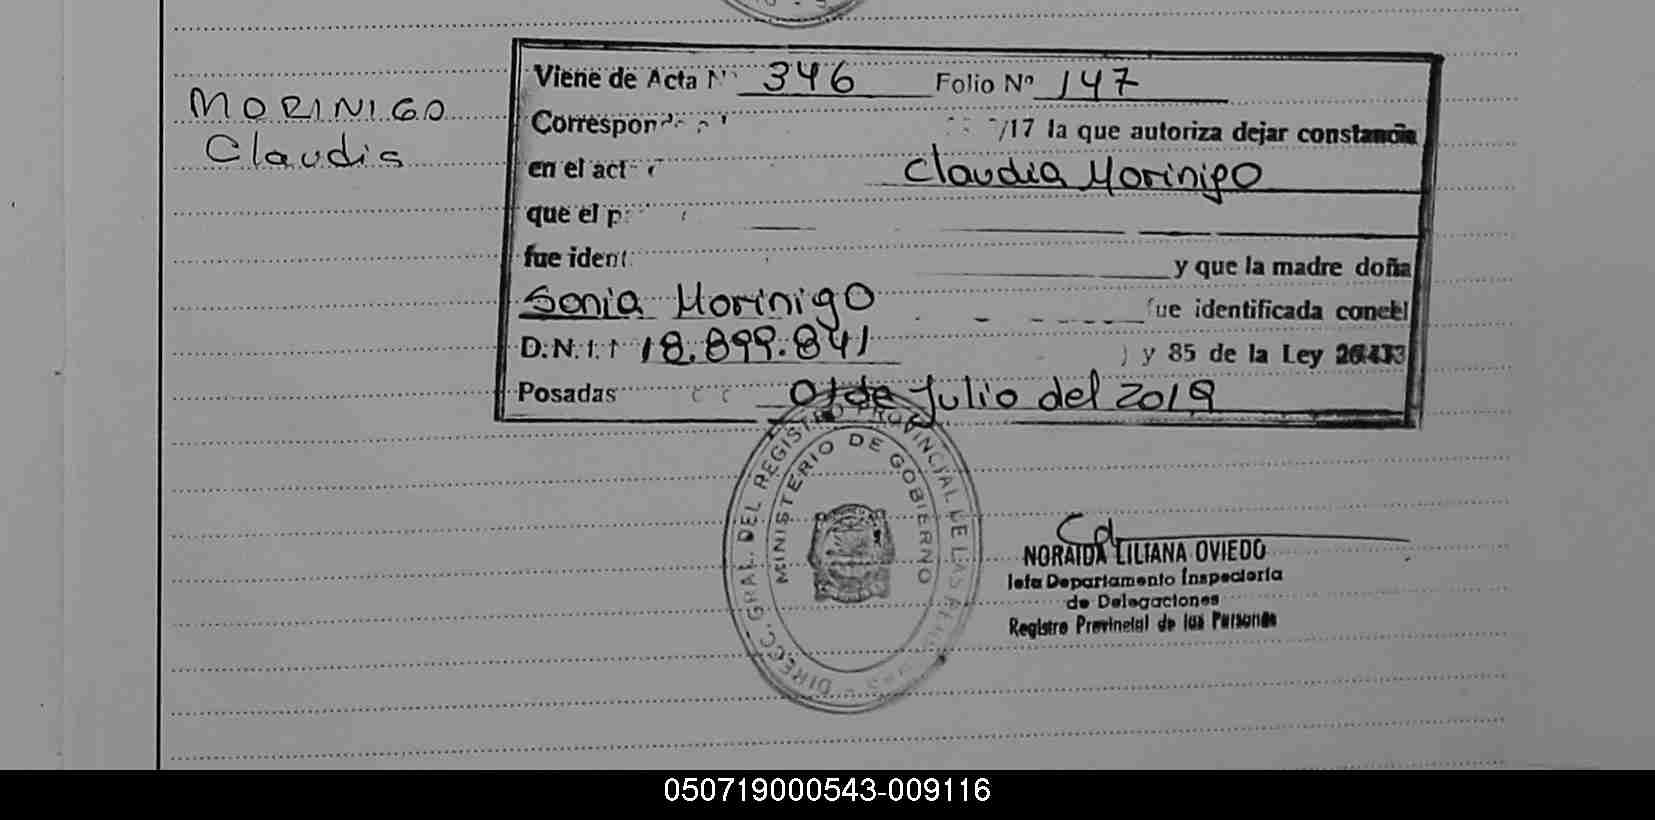 MORINIGO
Claudia
Viene de Acta N° 346 Folio Nº 147
/17 la que autoriza dejar constancia
en el Claudia Morinigo
que el
fue y que la madre doña
Sonia Morinigo fue identificada con el
D.N.I. 18.899.841 y 85 de la Ley
Posadas 01 de Julio del 2019
DIRECC. GRAL. DEL REGISTRO PROVINCIAL DE LAS
MINISTERIO DE GOBIERNO
NORAIDA LILIANA OVIEDO
Jefa Departamento Inspectoría
de Delegaciones
Registro Provincial de las Personas
050719000543-009116